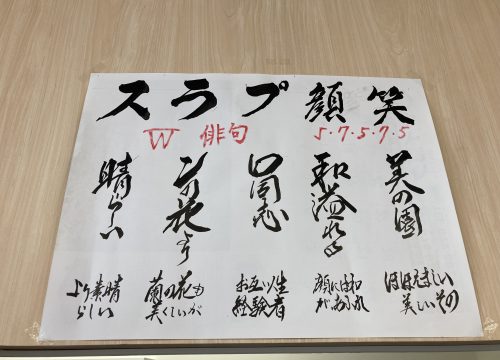 笑顔プラス
W 俳句
5・7・5・7・5
美の園
和溢れる
ロ同志
ンの花より
晴らしい
ほほえましい
美しいその
顔には和
があふれ
お互い
経験者
蘭の花も
美くしいが
より素晴
らしい